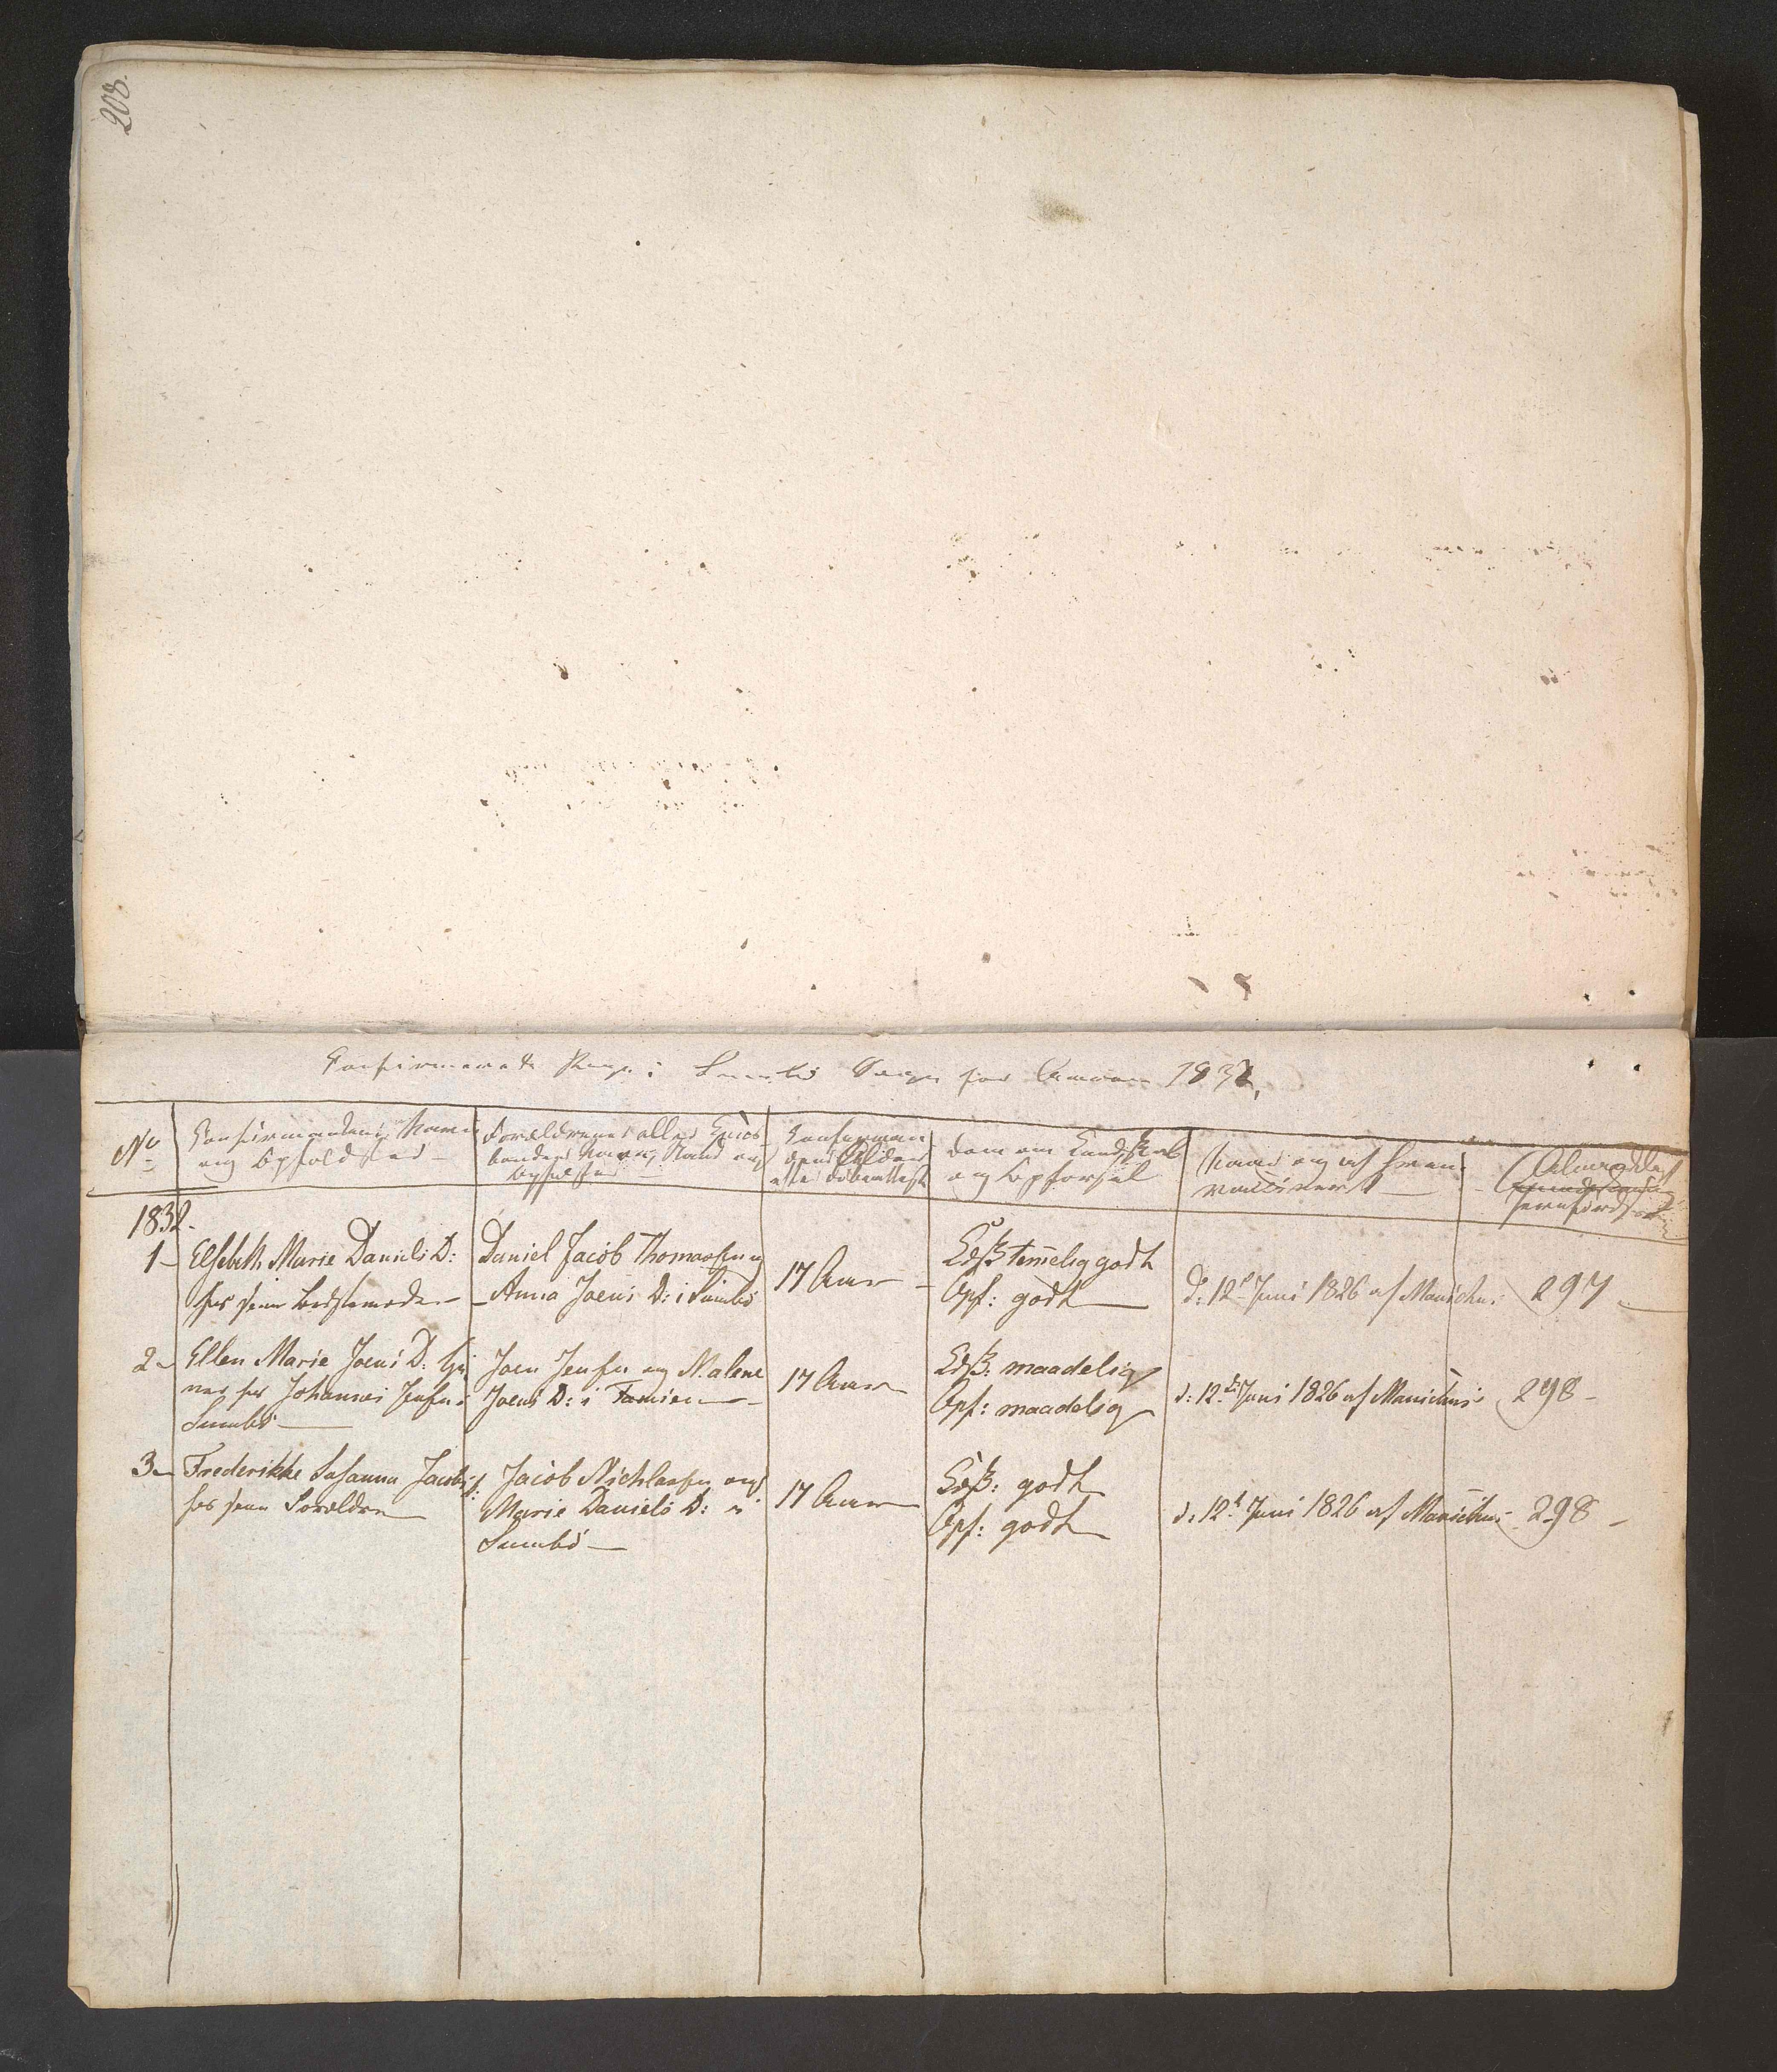 208.
Confirmerede Piger i Sumbö Sogn for Aaret 1832,
No
Confirmandens Navn
og Opholdsted -
Forældrenes eller Huus-
bondes Navn, Stand og
Opholdsted -
Confirman-
dens Alder
efter Döbeattest
Dom om Kundskab
og Opförsel
Naar og af hvem
vaccineret -
Almindelig
Jevnförelses
1832.
1 - Elsebeth Marie Daniels D:
hos sin Bedstemoder -
Daniel Jacob Thomassen og
Anna Joens D: i Sumbö
17 Aar -
Kdsk: temelig godt
Opf: godt -
d: 12 Juni 1826 af Manicus
297
2 - Ellen Marie Joens D: tje-
ner hos Johannes Jensen i
Sumbö -
Joen Jensen og Malene
Joens D: i Famien -
17 Aar
Kdsk: maadelig
Opf: maadelig
d: 12 Juni 1826 af Manicus
298 -
3 - Frederikke Susanna Jacobs D:
hos sine Forældre
Jacob Nichlassen og
Marie Daniels D: i
Sumbö -
17 Aar
Kdsk: godt
Opf: godt
d: 12 Juni 1826 af Manicus
298 -